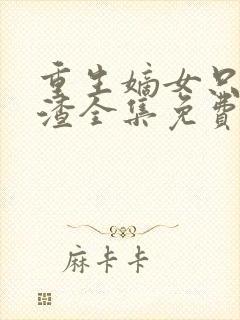 重生嫡女只
渣全集免费
麻卡卡